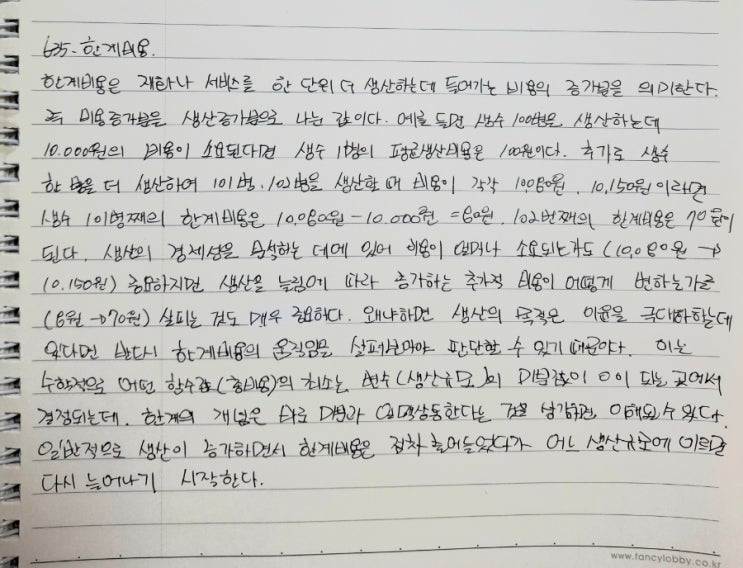 635. 한계비용.
한계비용은 재화나 서비스를 한 단위 더 생산하는데 들어가는 비용의 증가분을 의미한다.
즉 비용증가분을 생산증가분으로 나눈 값이다. 예를 들면 생수 100병을 생산하는데
10.000원의 비용이 소요된다면 생수 1병의 평균생산비용은 100원이다. 추가로 생수
한 병을 더 생산하여 101병, 102병을 생산할 때 비용이 각각 10060원, 10,150원이라면
생수 101병째의 한계비용은 10,060원 - 10.000원 = 60원. 102번째의 한계비용은 70원이
된다. 생산의 경제성을 분석하는 데에 있어 비용이 얼마나 소요되는가도 (10,080원 →
10.150원) 중요하지만 생산을 늘림에 따라 증가하는 추가적 비용이 어떻게 변하는가를
(6원 → 70원) 살피는 것도 매우 중요하다. 왜냐하면 생산의 목적은 이윤을 극대화하는데
있다면 반드시 한계비용의 움직임을 살펴보아야 판단할 수 있기 때문이다. 이는
수학적으로 어떤 함수값(총비용)의 최소는 변수(생산규모)의 미분값이 0이 되는 곳에서
결정되는데, 한계의 개념은 바로 미분과 일맥상통한다는 것을 상기하면 이해될 수 있다.
일반적으로 생산이 증가하면서 한계비용은 점차 줄어들었다가 어느 생산규모에 이르면
다시 늘어나기 시작한다.
www.fancylobby.co.kr